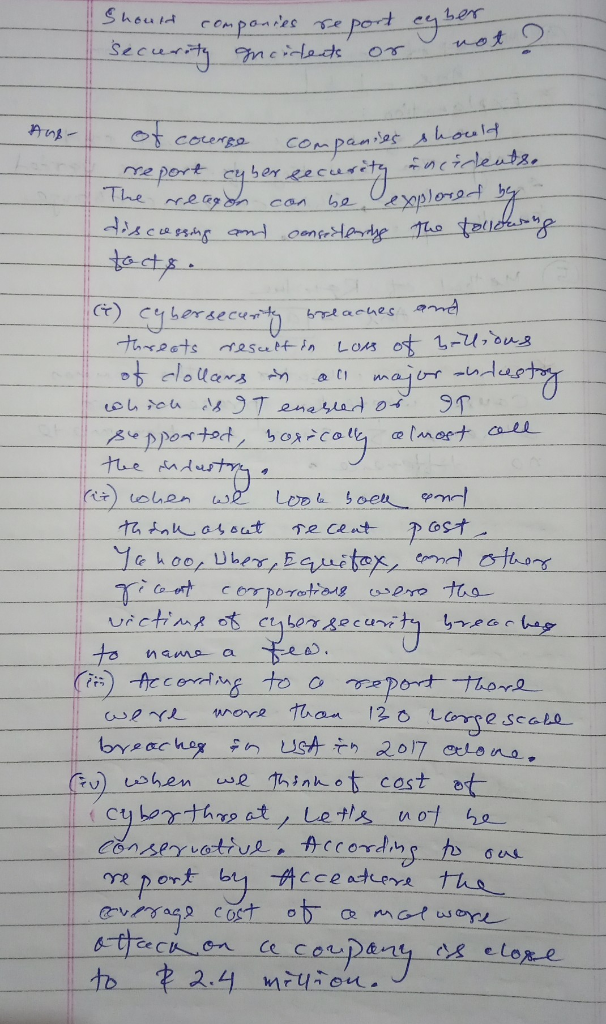 Should companies report cyber
security incidents or not ?
Ans- Of course companies should
report cyber security incidents.
The reason can be explored by
discussing and considering the following
facts.
(i) cybersecurity breaches and
threats result in Loss of billions
of dollars in all major industry
which is IT enabled or IT
supported, basically almost all
the industry.
(ii) when we look back and
think about recent past,
Yahoo, Uber, Equifax, and other
giant corporations were the
victims of cybersecurity breaches
to name a few.
(iii) According to a report there
were more than 130 Large scale
breaches in USA in 2017 alone.
(iv) when we think of cost of
cyberthreat, Let's not be
conservative. According to one
report by the
average cost of a malware
attack on a company is close
to $ 2.4 million.